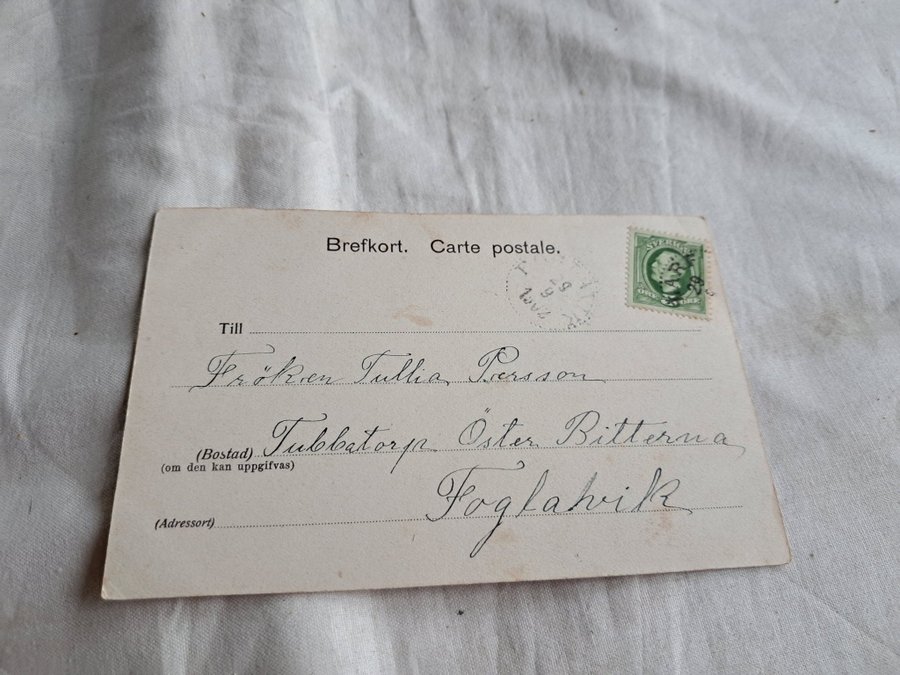 Brefkort. Carte postale.
SVERIGE
29
9
1902
KARA
29
Till
Fröken Tullia Persson
(Bostad) Tubbatorp Öster Bitterna
(om den kan uppgifvas)
Foglavik
(Adressort)